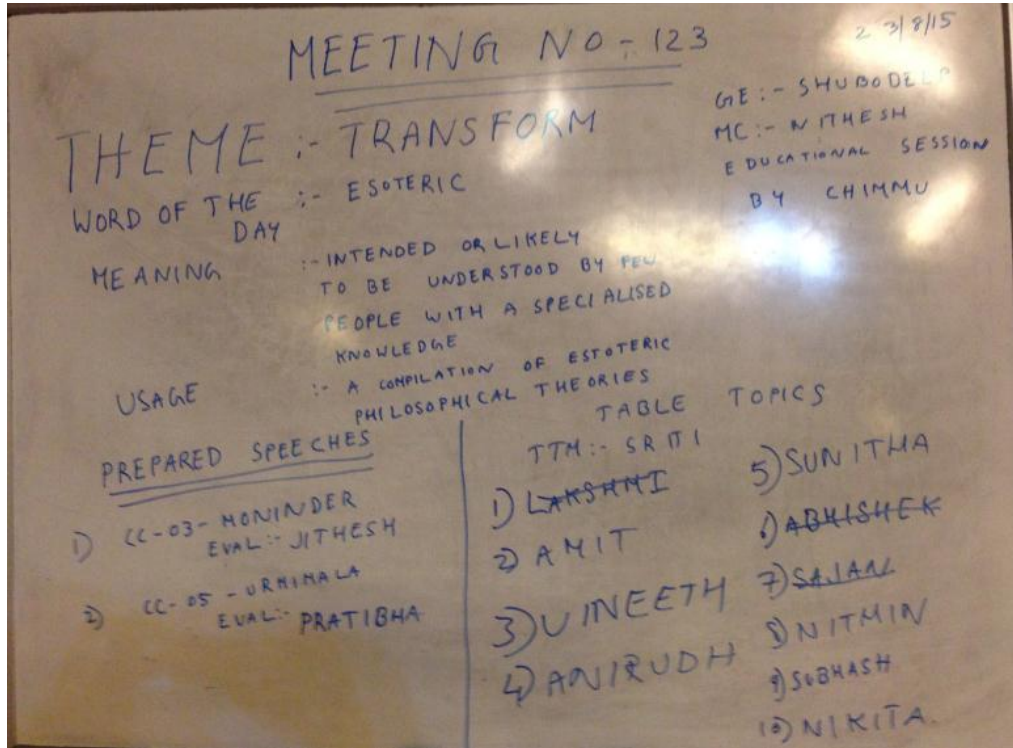 23/8/15
MEETING NO - 123
GE :- SHUBODEEP
MC :- NITHESH
EDUCATIONAL SESSION
BY CHIMMU
THEME :- TRANSFORM
WORD OF THE DAY :- ESOTERIC
MEANING :- INTENDED OR LIKELY
TO BE UNDERSTOOD BY FEW
PEOPLE WITH A SPECIALISED
KNOWLEDGE
USAGE :- A COMPILATION OF ESTOTERIC
PHILOSOPHICAL THEORIES
PREPARED SPEECHES
1) CC-03- MONINDER
EVAL:- JITHESH
2) CC-05 - URMIMALA
EVAL:- PRATIBHA
TABLE TOPICS
TTM:- SRITI
1) LAKSHMI
2) AMIT
3) VINEETH
4) ANIRUDH
5) SUNITHA
6) ABHISHEK
7) SAJAN
8) NITMIN
9) SUBHASH
10) NIKITA.